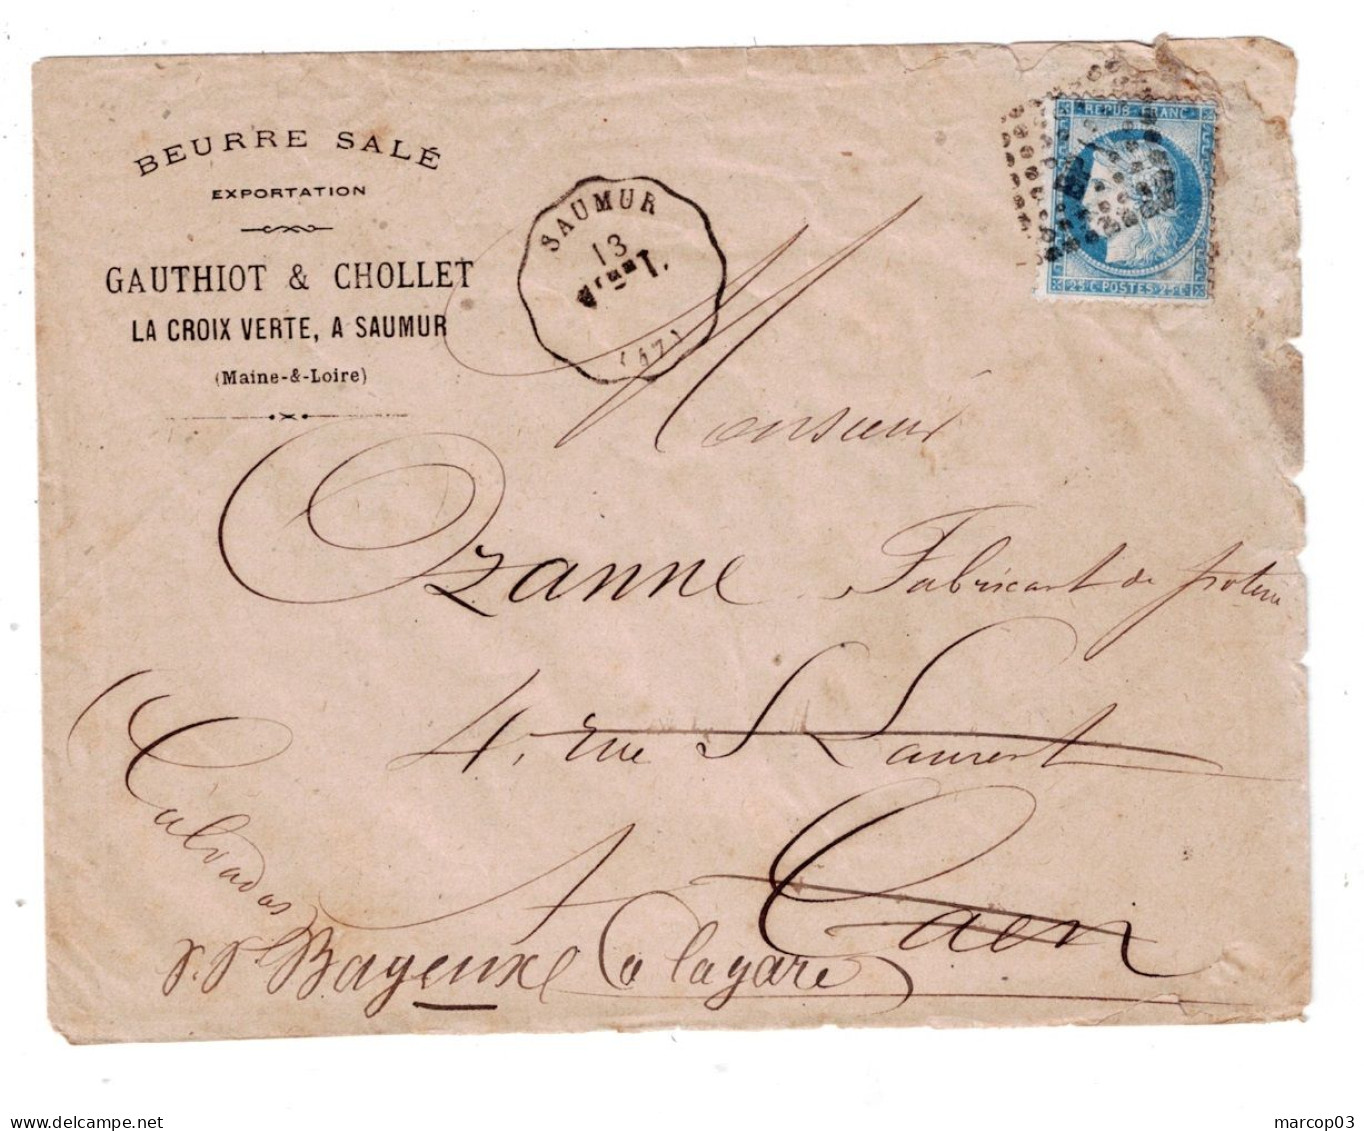 BEURRE SALÉ
EXPORTATION
GAUTHIOT & CHOLLET
LA CROIX VERTE, A SAUMUR
(Maine-&-Loire)
SAUMUR
13
(47)
REPUB FRANC
25 C POSTES 25 C
Monsieur
Ozanne Fabricant de
4, rue S Laurent
Caen
Calvados
Bayeux a la gare
marcop03